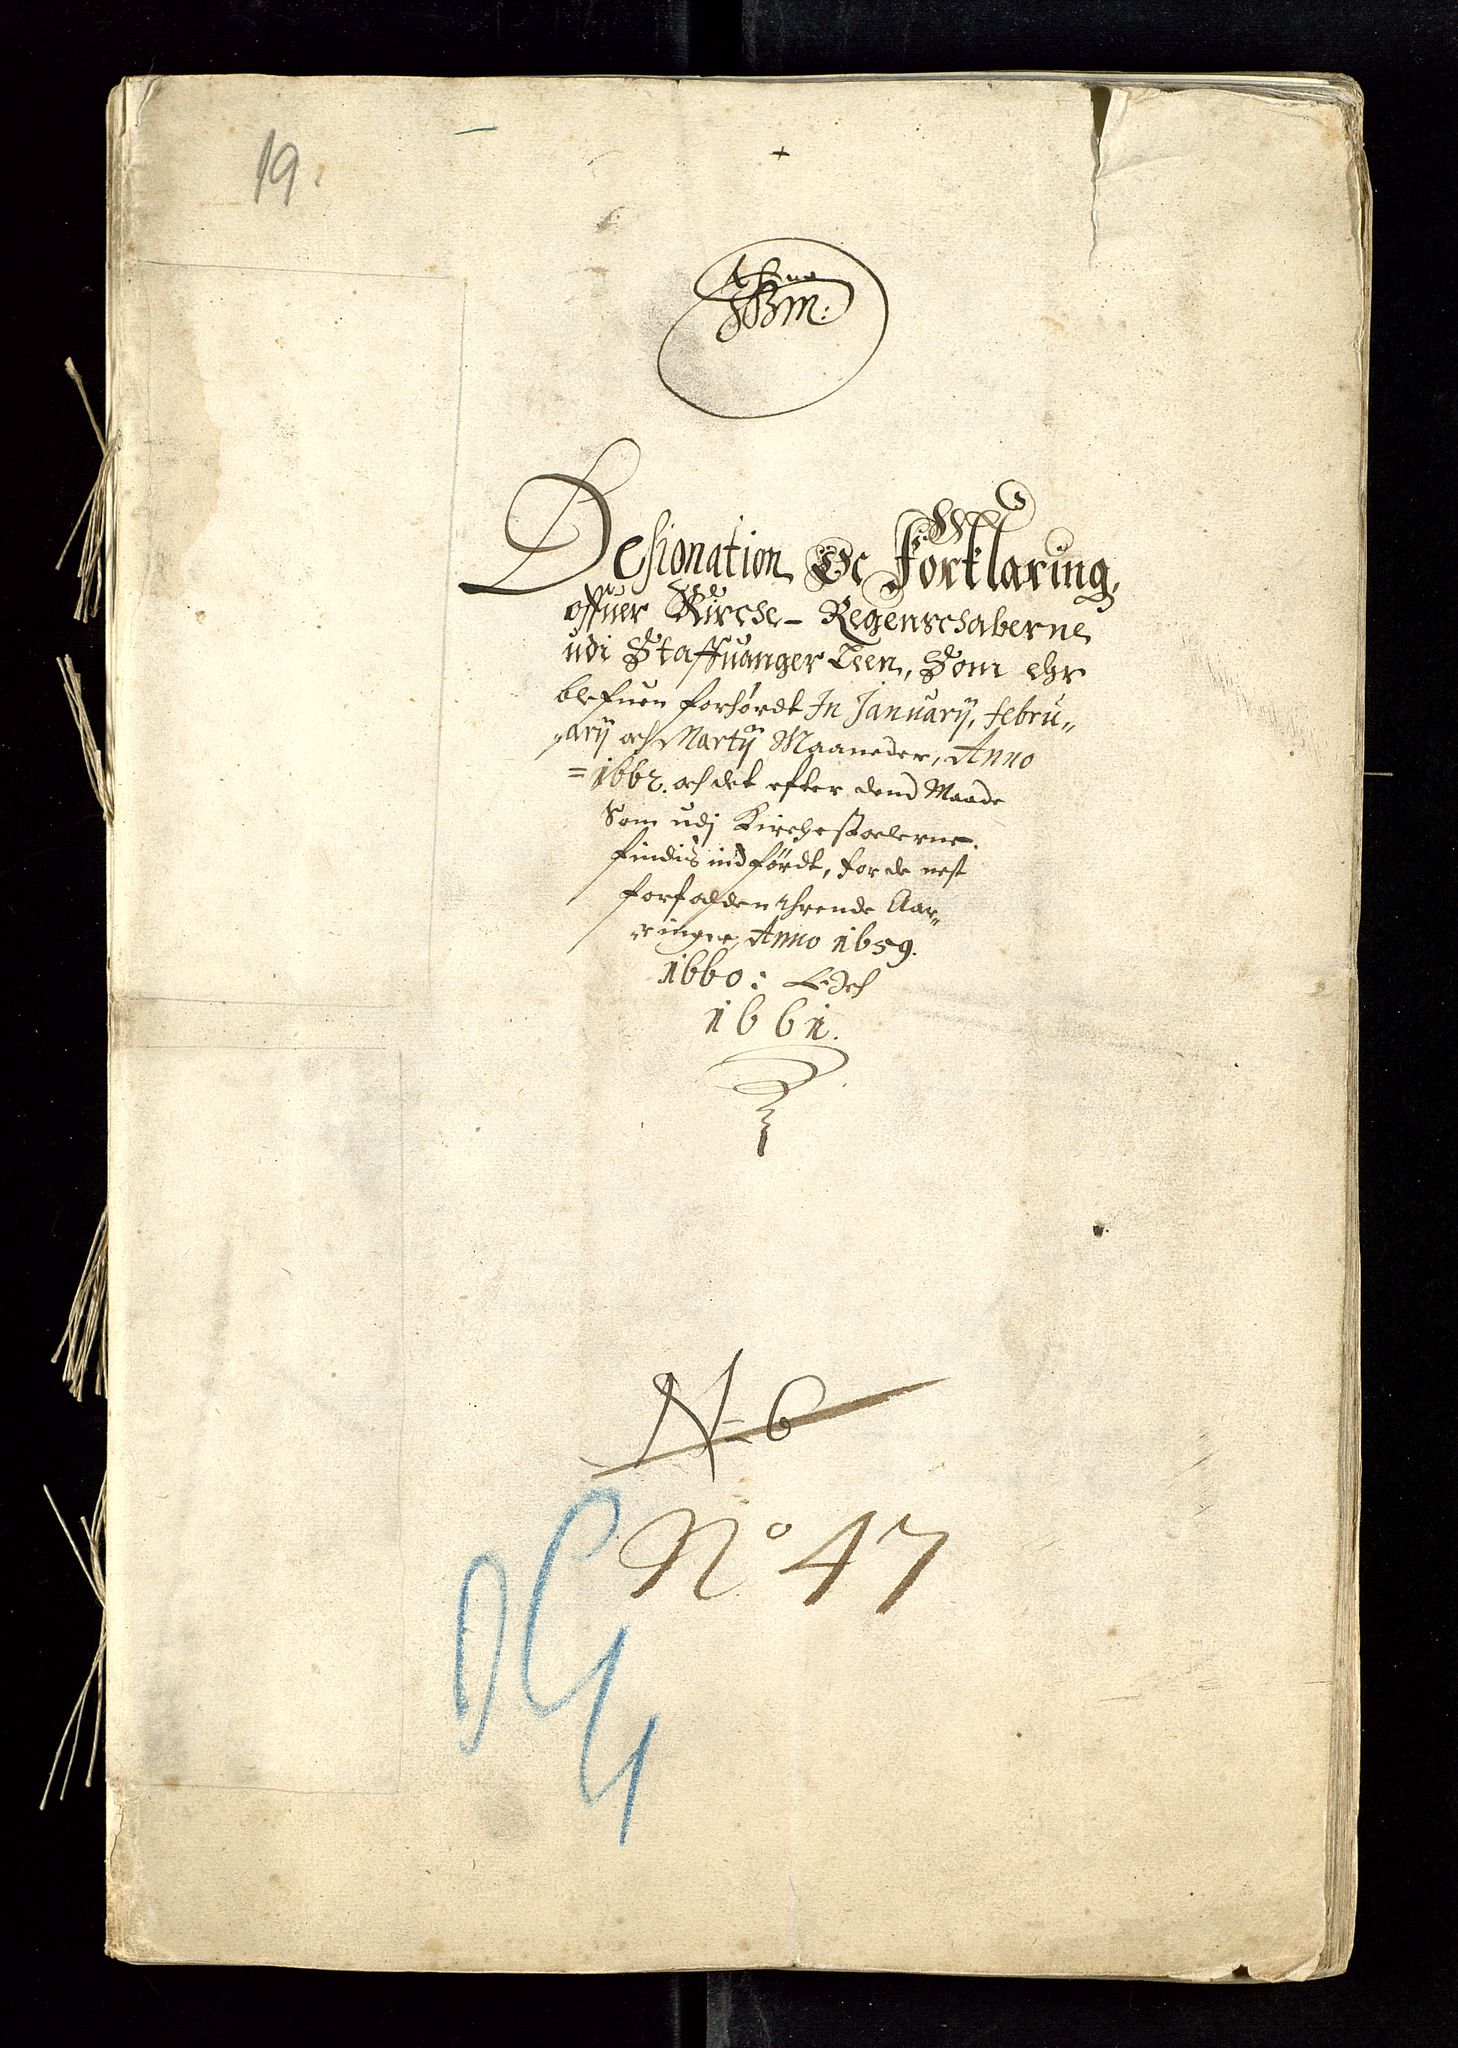 19.
Designation Oc Forklaring,
offuer Kirche-Regenschaberne
udi Staffuanger Leen, Som ehr
blefuen forhördt In January, Febru„
„ary och Martij Maaneder, Anno
=1662. och det efter dend Maade
Som udj Kirchestoelerne
findis indfördt, for de nest
forfalden thrende Aar„
ringer, Anno 1659.
1660: Och
1661.
N=6
No 47